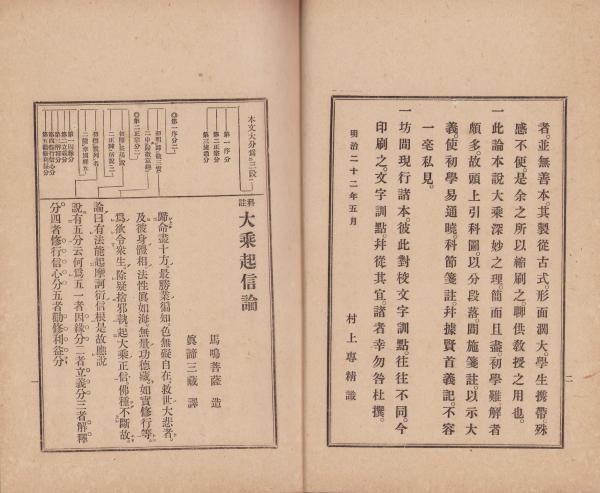 者。並無善本。其製從古式。形面濶大。學生携帶殊
感不便。是余之所以縮刷之聊供敎授之用也。
一此論本說大乘深妙之理。簡而且盡。初學難解者
頗多。故頭上引科圖。以分段落。間施箋註。以示大
義。使初學易通曉。科節箋註。幷據賢首義記。不容
一毫私見。
一坊間現行諸本。彼此對校。文字訓點。往往不同。今
印刷之。文字訓點。幷從其宜。諸者幸勿咎杜撰。
明治二十二年五月
村上專精識
二
本文大分爲三段
第一序分
第二正宗分
第三流通分
科註 大乘起信論
馬鳴菩薩 造
眞諦三藏 譯
◎第一序分二
◎第二正宗分二
歸命盡十方。最勝業徧知。色無礙自在。救世大悲者。
及彼身體相。法性眞如海。無量功德藏。如實修行等。
爲欲令衆生。除疑捨邪執。起大乘正信。佛種不斷故。
論曰有法能起摩訶衍信根。是故應說
說有五分。云何爲五。一者因緣分。二者立義分。三者解釋
分。四者修行信心分。五者勸修利益分。
第一因緣分
第二立義分
第三解釋分
第四修行信心分
第五勸修利益分
一